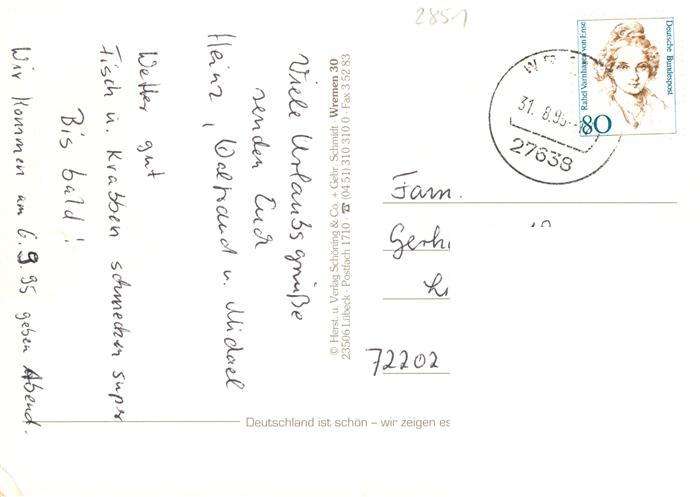 Viele Urlaubsgrüße
senden Euch
Heinz, Waltraud u. Michael
Wetter gut
Fisch u. Krabben schmecken super
Bis bald!
Wir kommen am 6.9.95 gegen Abend.
© Herst. u. Verlag Schöning & Co. + Gebr. Schmidt Wremen 30
23506 Lübeck · Postfach 1710 · ☎ (04 51) 310 310 0 · Fax 3 52 83
2851
Rahel Varnhagen von Ense
Deutsche Bundespost
80
31. 8. 95
27638
Fam.
Gerh
72202
Deutschland ist schön – wir zeigen es